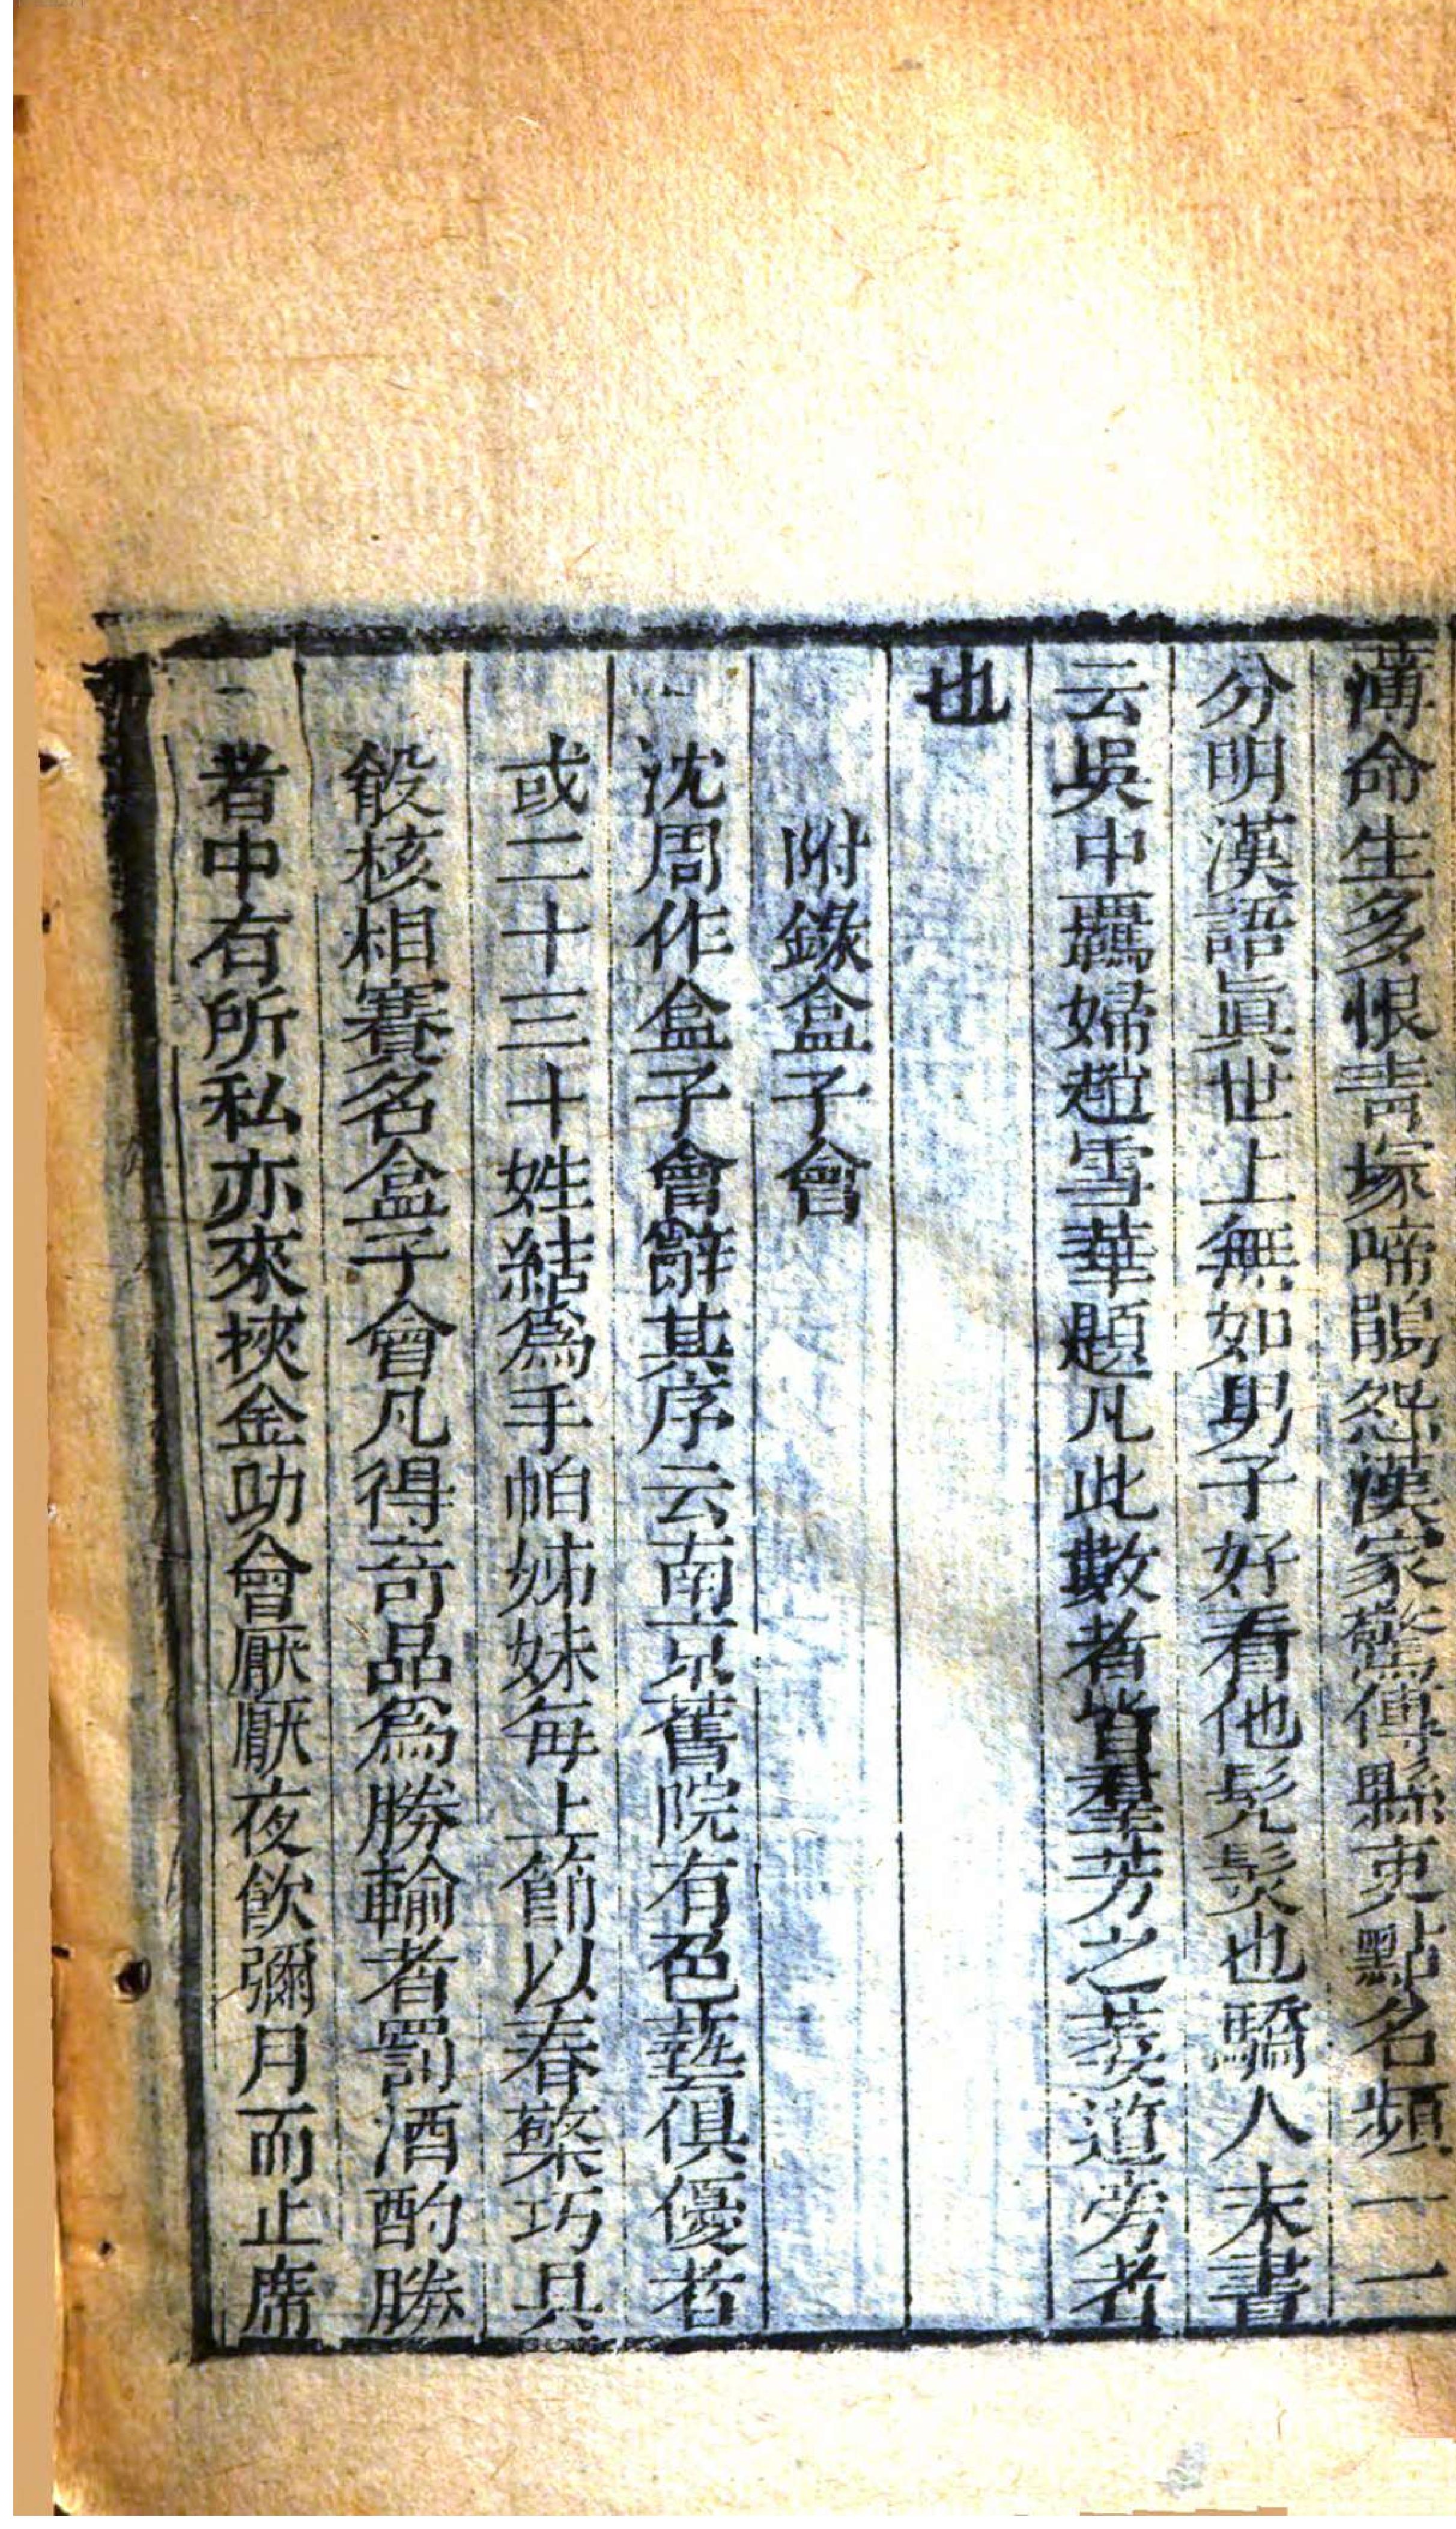 薄命生多恨青塚啼鵑怨漢家驚傳縣吏點名頻一一
分明漢語眞世上無如男子好看他髡髮也驕人末書
云吳中羈婦趙雪華題凡此數者皆羣芳之萎道旁者
也
附錄盒子會
沈周作盒子會辭其序云南京舊院有色藝俱優者
或二十三十姓結爲手帕姊妹每上節以春檠巧具
殽核相賽名盒子會凡得奇品爲勝輸者罰酒酌勝
者中有所私亦來挾金助會厭厭夜飮彌月而止席